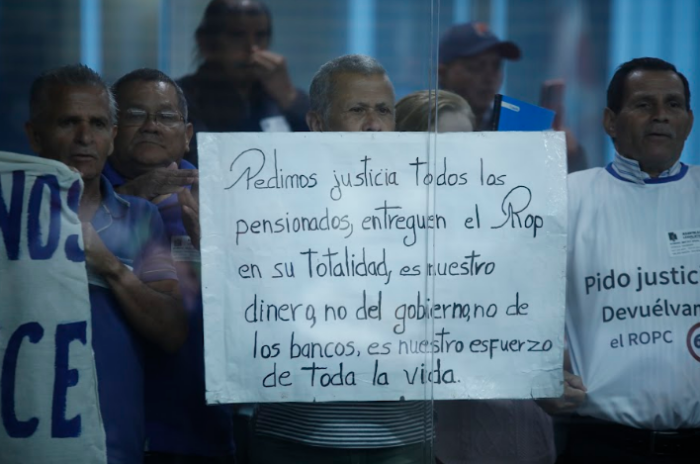 NOS
CE
Pedimos justicia todos los
pensionados, entreguen el Rop
en su totalidad, es nuestro
dinero, no del gobierno, no de
los bancos, es nuestro esfuerzo
de toda la vida.
Pido justic
Devuélvan
el ROPC